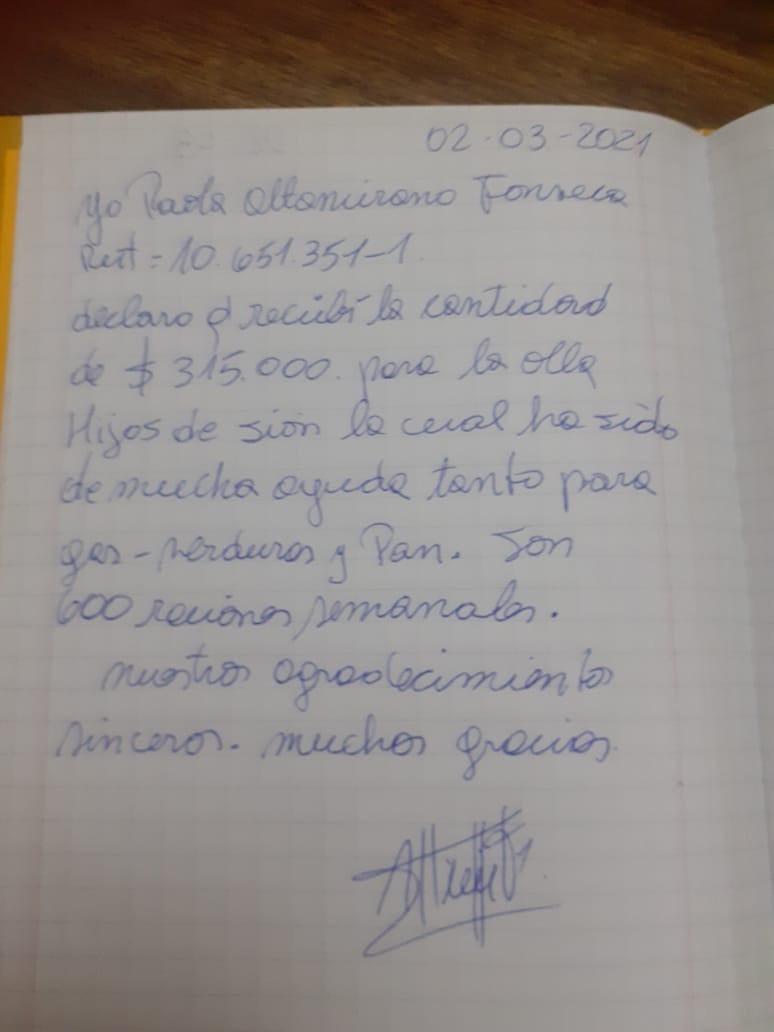 02-03-2021
Yo Paola Altamirano Fonseca
Rut = 10.651.351-1.
declaro q recibí la cantidad
de $ 315.000. para la olla
Hijos de sión la cual ha sido
de mucha ayuda tanto para
gas - verduras y Pan. Son
600 raciones semanales.
nuestros agradecimientos
sinceros. muchas gracias.